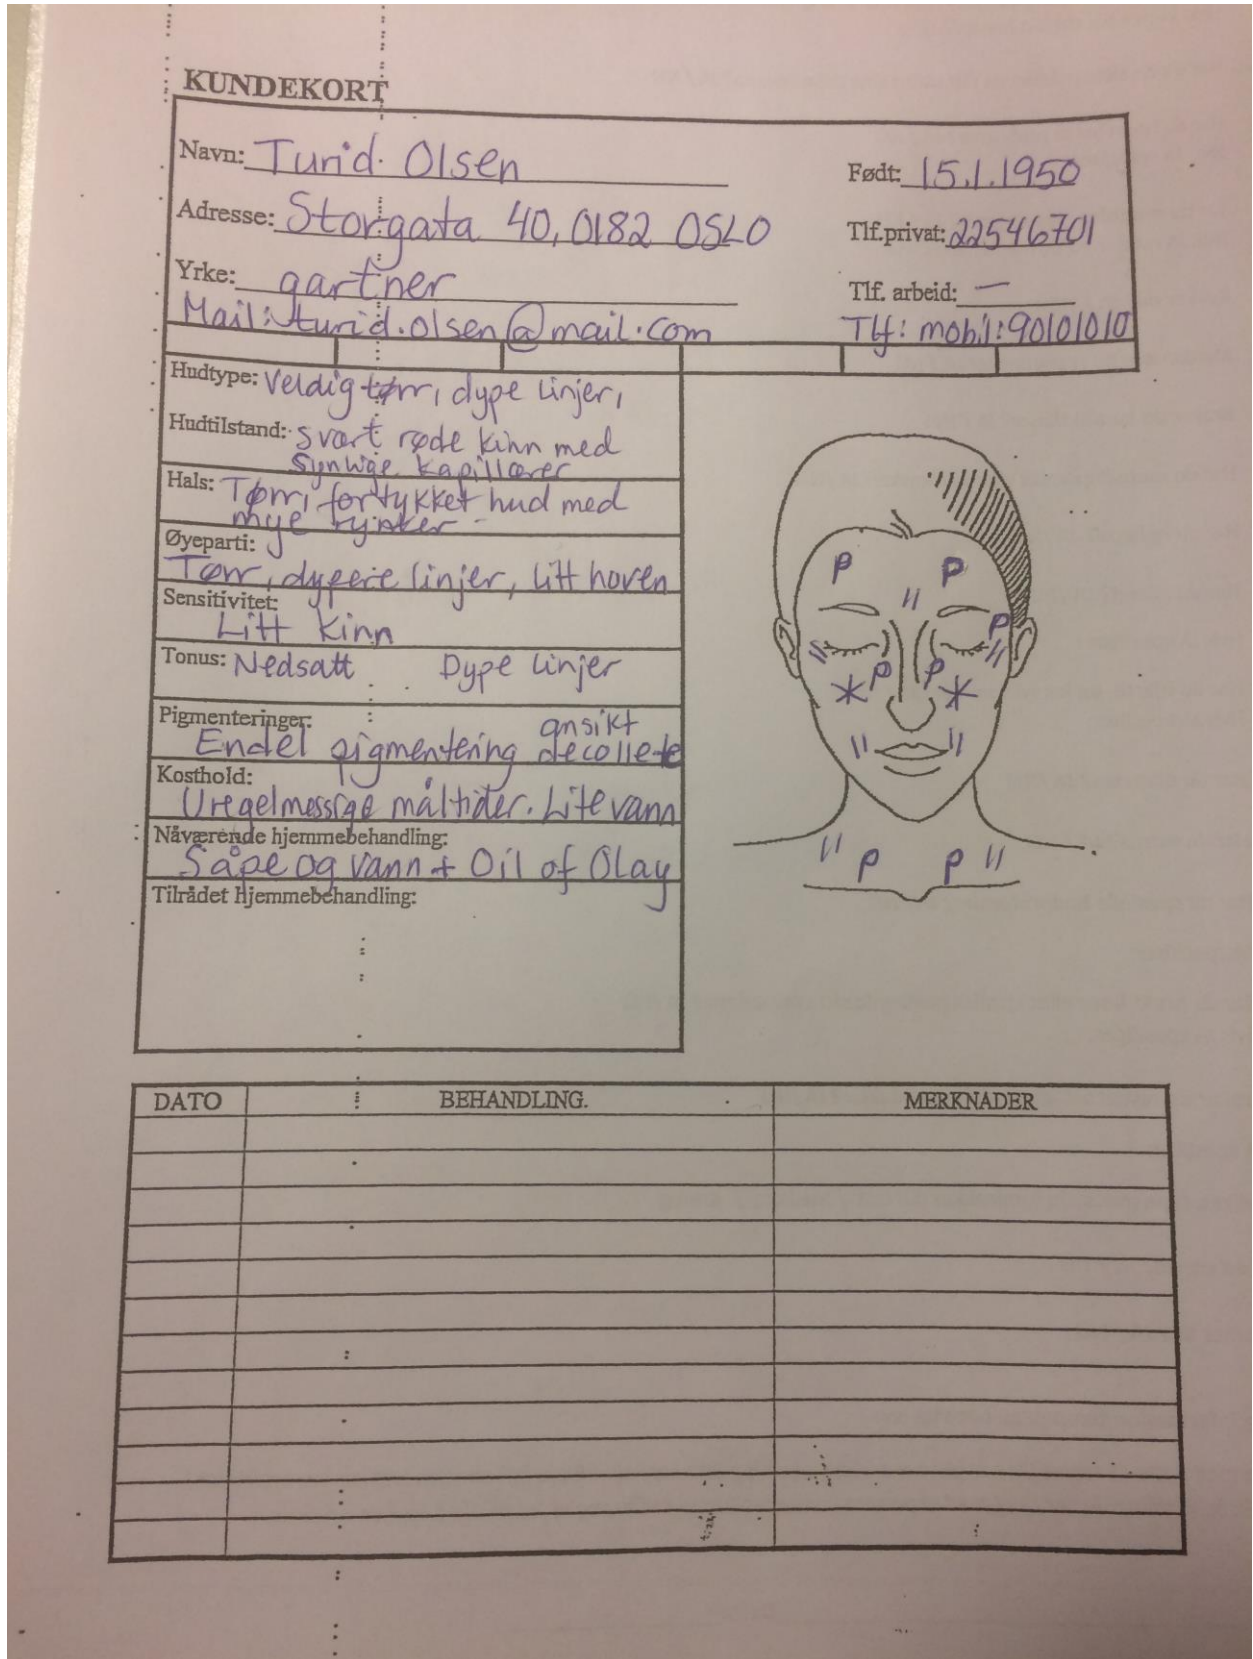 KUNDEKORT
Navn: Turid Olsen
Født: 15.1.1950
Adresse: Storgata 40, 0182 OSLO
Tlf.privat: 22546701
Yrke: gartner
Tlf. arbeid: —
Mail: turid.olsen@mail.com
Tlf: mobil: 90101010
Hudtype: Veldig tørr, dype linjer,
Hudtilstand: svært røde kinn med
synlige kapillærer
Hals: Tørr, fortykket hud med
mye rynker
Øyeparti:
Tørr, dypere linjer, litt hoven
Sensitivitet:
Litt kinn
Tonus: Nedsatt Dype linjer
Pigmenteringer: ansikt
Endel pigmentering decollete
Kosthold:
Uregelmessige måltider. Lite vann
Nåværende hjemmebehandling:
Såpe og vann + Oil of Olay
Tilrådet hjemmebehandling:
P P
P
P P
P P
DATO BEHANDLING. MERKNADER